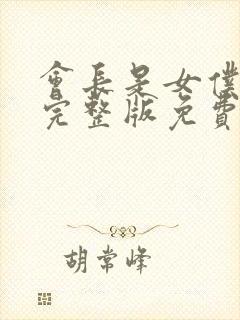 會長是女僕
完整版免費
胡常峰